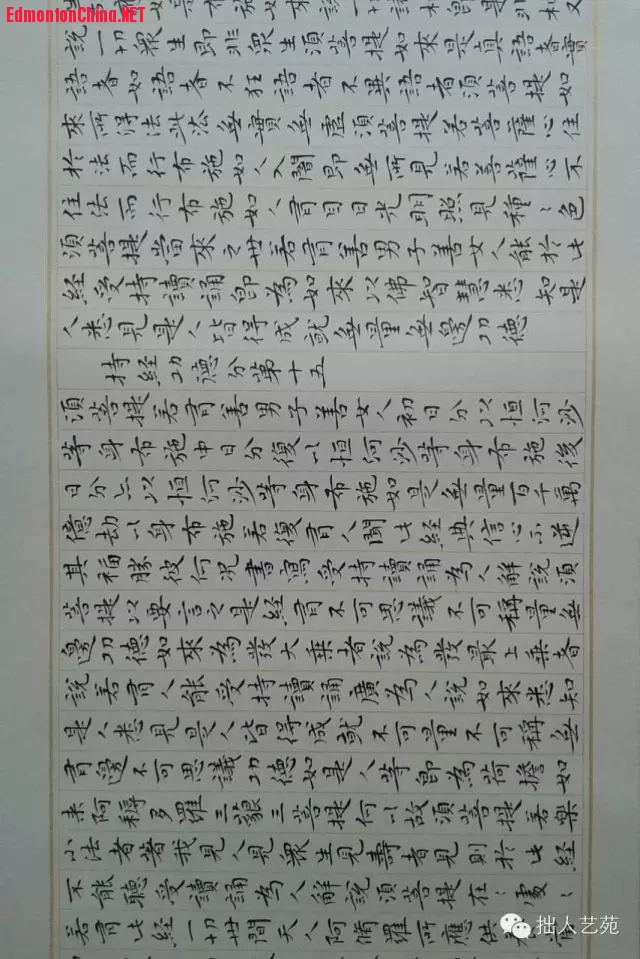 EdmontonChina.NET
說一切眾生即非眾生須菩提如來是真語者實
語者如語者不狂語者不異語者須菩提如
來所得法此法無實無虛須菩提若菩薩心住
於法而行布施如人入闇即無所見若菩薩心不
住法而行布施如人有目日光明照見種〻色
須菩提當來之世若有善男子善女人能於此
經受持讀誦即為如來以佛智慧悉知是
人悉見是人皆得成就無量無邊功德
持經功德分第十五
須菩提若有善男子善女人初日分以恒河沙
等身布施中日分復以恒河沙等身布施後
日分亦以恒河沙等身布施如是無量百千萬
億劫以身布施若復有人聞此經典信心不逆
其福勝彼何況書寫受持讀誦為人解說須
菩提以要言之是經有不可思議不可稱量無
邊功德如來為發大乘者說為發最上乘者
說若有人能受持讀誦廣為人說如來悉知
是人悉見是人皆得成就不可量不可稱無
有邊不可思議功德如是人等即為荷擔如
来阿耨多羅三藐三菩提何以故須菩提若樂
小法者著我見人見眾生見壽者見則於此經
不能聽受讀誦為人解說須菩提在〻處〻
若有此經一切世間天人阿脩羅所應供
拙人艺苑